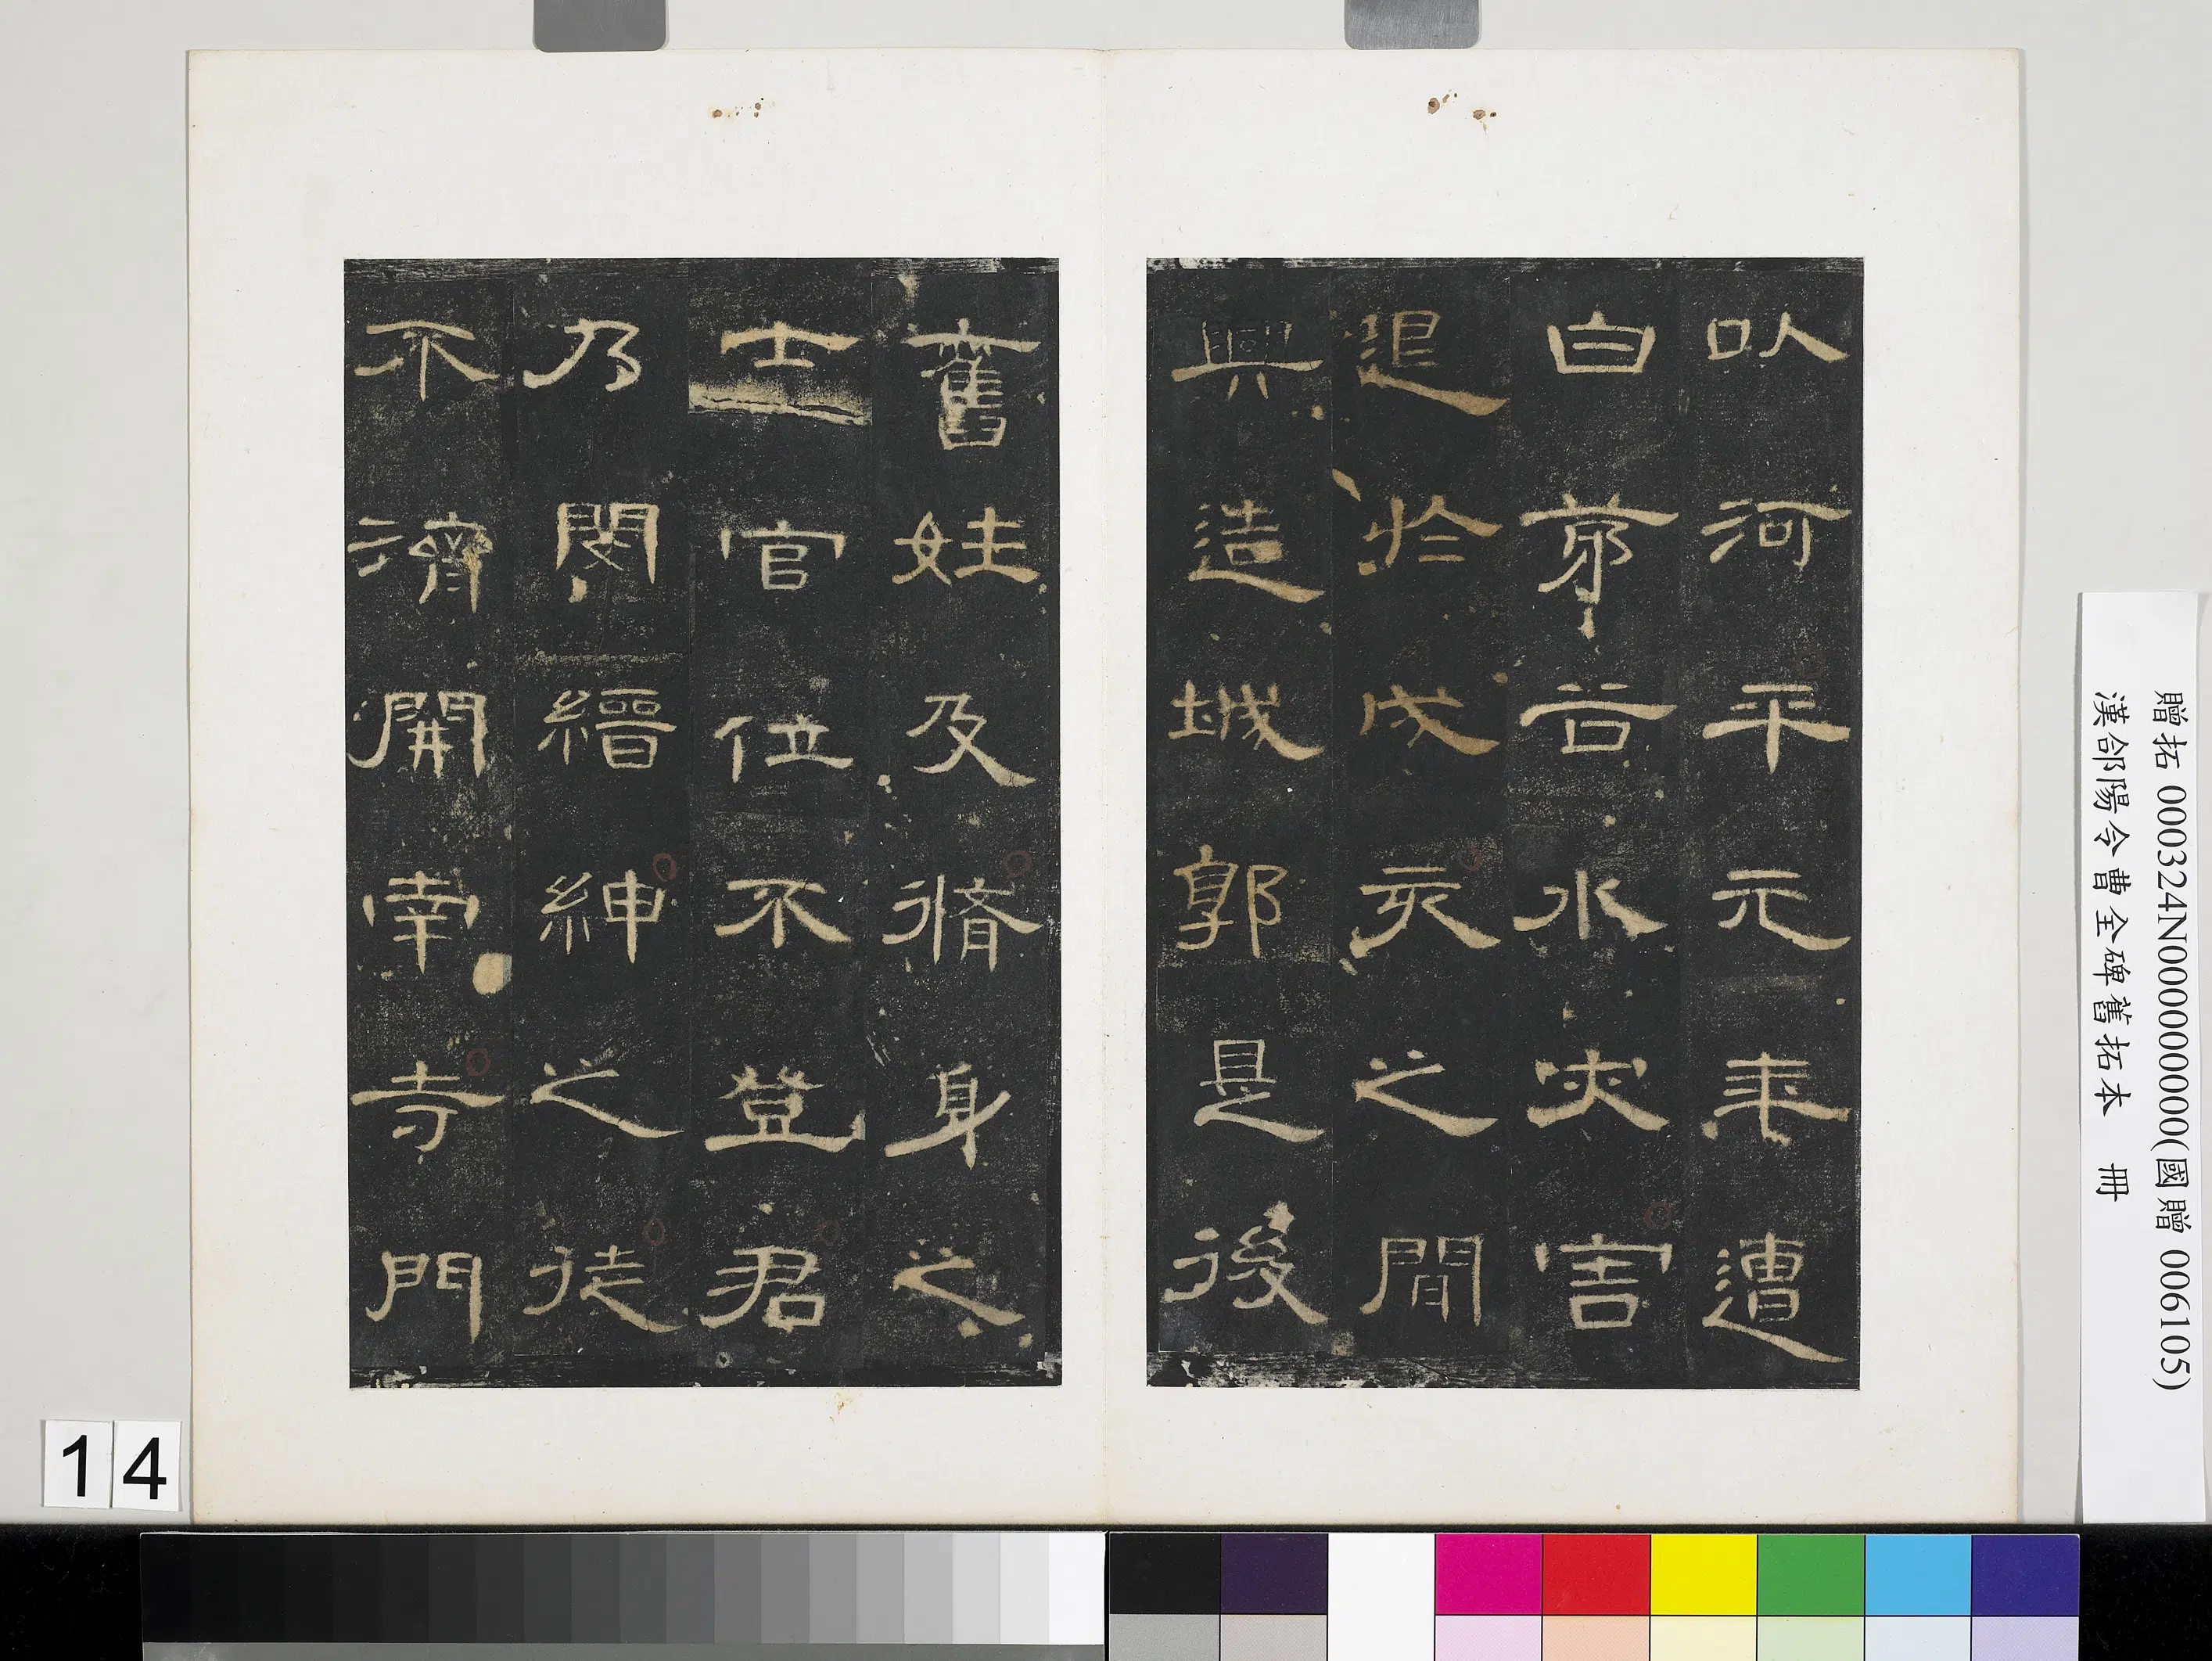 以河平元年遭
白茅谷水灾害
退於戌亥之間
興造城郭是後
舊姓及脩身之
士官位不登君
乃閔縉紳之徒
不濟開南寺門
贈拓 000324N000000000(國贈 006105)
漢郃陽令曹全碑舊拓本 冊
14